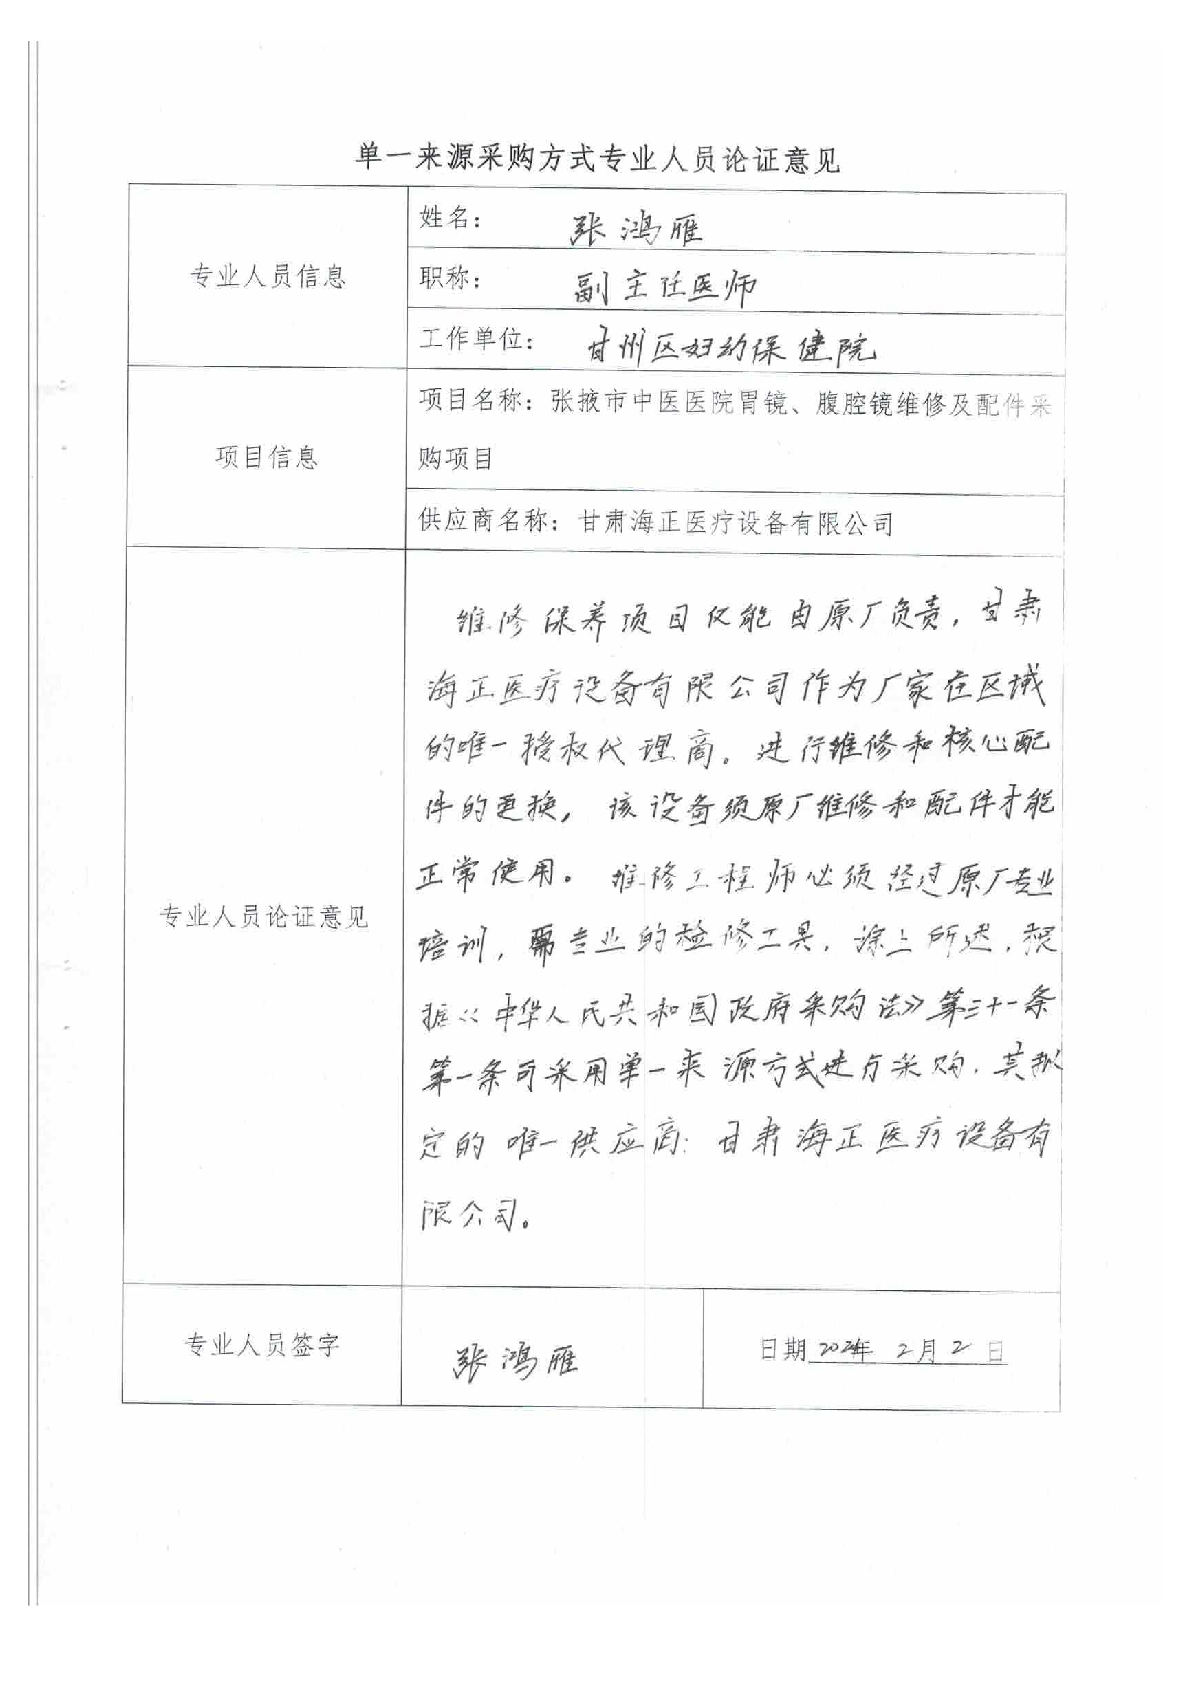 单一来源采购方式专业人员论证意见
专业人员信息
姓名： 张鸿雁
职称： 副主任医师
工作单位： 甘州区妇幼保健院
项目信息
项目名称：张掖市中医医院胃镜、腹腔镜维修及配件采
购项目
供应商名称：甘肃海正医疗设备有限公司
专业人员论证意见
维修保养项目仅能由原厂负责，甘肃
海正医疗设备有限公司作为厂家在区域
的唯一授权代理商。进行维修和核心配
件的更换，该设备须原厂维修和配件才能
正常使用。维修工程师必须经过原厂专业
培训，需专业的检修工具，综上所述，根
据《中华人民共和国政府采购法》第三十一条
第一条可采用单一来源方式进行采购，其拟
定的唯一供应商：甘肃海正医疗设备有
限公司。
专业人员签字
张鸿雁
日期 年 2月2日